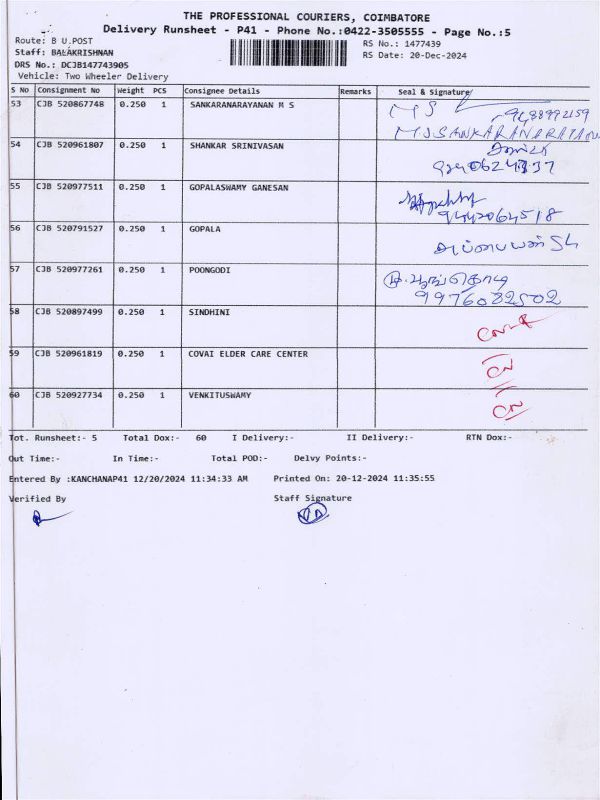 THE PROFESSIONAL COURIERS, COIMBATORE
Delivery Runsheet - P41 - Phone No.:0422-3505555 - Page No.:5
Route: B U.POST
RS No.: 1477439
Staff: BALAKRISHNAN
RS Date: 20-Dec-2024
DRS No.: DCJB147743905
Vehicle: Two Wheeler Delivery
S No Consignment No Weight PCS Consignee Details Remarks Seal & Signature
53 CJB 520867748 0.250 1 SANKARANARAYANAN M S M S
9488992159
54 CJB 520961807 0.250 1 SHANKAR SRINIVASAN
55 CJB 520977511 0.250 1 GOPALASWAMY GANESAN
9442064518
56 CJB 520791527 0.250 1 GOPALA
57 CJB 520977261 0.250 1 POONGODI மு.பூங்கொடி
9976082502
58 CJB 520897499 0.250 1 SINDHINI
59 CJB 520961819 0.250 1 COVAI ELDER CARE CENTER CN
60 CJB 520927734 0.250 1 VENKITUSWAMY CN
Tot. Runsheet:- 5 Total Dox:- 60 I Delivery:- II Delivery:- RTN Dox:-
Out Time:- In Time:- Total POD:- Delvy Points:-
Entered By :KANCHANAP41 12/20/2024 11:34:33 AM Printed On: 20-12-2024 11:35:55
Verified By Staff Signature